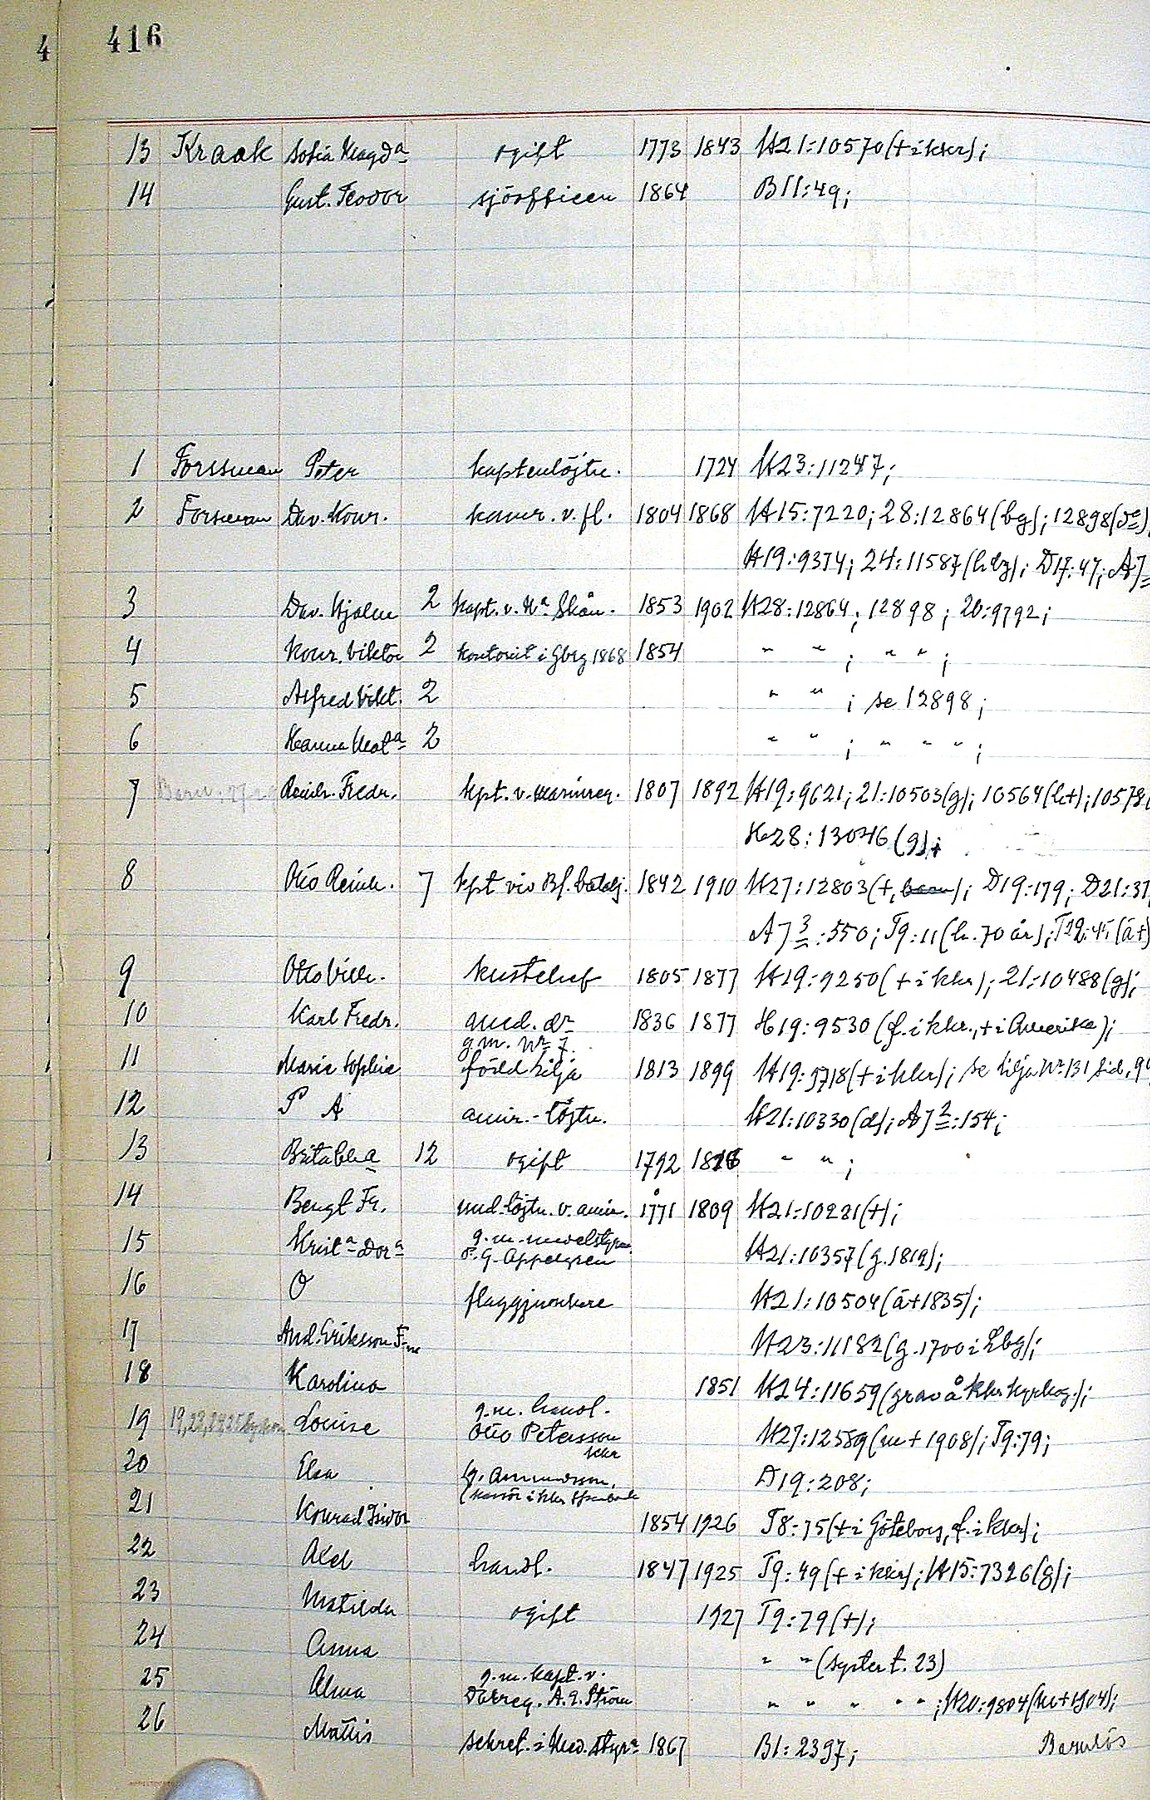 4 416
13 Kraak Sofia Magda ogift 1773 1843 H21:10570(+ i kkr);
14 Gust. Teodor sjöofficer 1864 B11:49;
1 Forssman Peter kaptenlöjtn. 1724 H23:11247;
2 Forsman Dav. Konr. kamr. v. fl. 1804 1868 H15:7220; 28:12864(bg); 12898(
H19:9374; 24:11587( ); D17:47; A7
3 Dav. Hjalm 2 kapt. v. Na Skån. 1853 1902 H28:12864; 12898; 20:9792;
4 Konr. Viktor 2 kontorist i Gbrg 1868 1854 " " ; " " ;
5 Alfred Vikt. 2 " " ; se 12898;
6 Hanna Mata 2 " " ; " " " ;
7 Reinh. Fredr. kpt. v. marinreg. 1807 1892 H19:9621; 21:10503(g); 10564( ); 1057
H28:13046(g);
8 Otto Reinh. 7 kpt vid Bl. bataij. 1842 1910 H27:12803(+, barn); D19:179; D21:37
A7 3:550; T9:11( . 70 år);
9 Otto Vilh. 1805 1877 H19:9250(+ i kkr); 21:10488(g);
10 Karl Fredr. med. dr 1836 1877 H19:9530(f. i kkr., + i Amerika);
g.m. Nr 7
11 Marie Sophie född Lilja 1813 1899 H19:9718(+ i kkr); se Lilja Nr 131 sid. 9
12 P A amir.-löjtn. H21:10330(d); A7 2:154;
13 Brita 12 ogift 1792 " " ;
14 Bengt Fr. und.-löjtn. v. amir. 1771 1809 H21:10221(+);
g.m. medelstyrm.
15 Krista Dora P. G. Appelgren H21:10357(g. 1819);
16 O flaggjunkare H21:10504(ä+1835);
17 And. Eriksson F-m H23:11182(g. 1700 i Lbg);
18 Karolina 1851 H24:11659(grav å kkr kyrkog.);
g.m. handl.
19 19,23,24,25 syskon Louise Otto Petersson H27:12589(m+1908); T9:79;
kkr
20 Elsa D19:208;
21 Konrad Isidor 1854 1926 T8:75(+ i Göteborg, f. i kkr);
22 Axel handl. 1847 1925 T9:49(+ i kkr); H15:7326(g);
23 Matilda ogift 1927 T9:79(+);
24 Anna " " (syster t. 23)
g.m. kapt. v.
25 Alma Dalreg. A. G. Ström " " " " " ; H20:9804(m+1904);
26 Mattis sekret. i Med. styra 1867 B1:2397; Barnlös